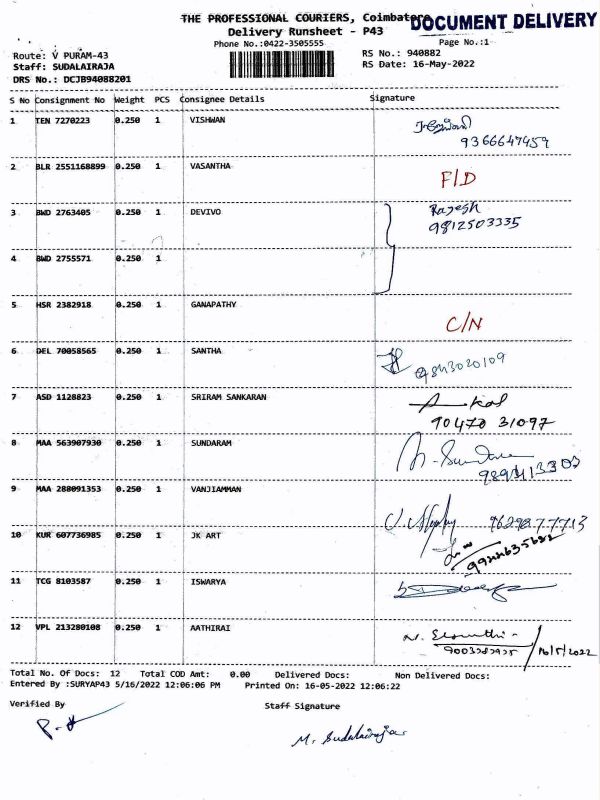 THE PROFESSIONAL COURIERS, Coimbatore
DOCUMENT DELIVERY
Delivery Runsheet - P43
Phone No.:0422-3505555
Page No.:1
Route: V PURAM-43
RS No.: 940882
Staff: SUDALAIRAJA
RS Date: 16-May-2022
DRS No.: DCJB94088201
S No Consignment No Weight PCS Consignee Details Signature
1 TEN 7270223 0.250 1 VISHWAN
9366647459
2 BLR 2551168899 0.250 1 VASANTHA F/D
3 BWD 2763405 0.250 1 DEVIVO Rajesh
9812503335
4 BWD 2755571 0.250 1
5 HSR 2382918 0.250 1 GANAPATHY C/N
6 DEL 70058565 0.250 1 SANTHA
9843020109
7 ASD 1128823 0.250 1 SRIRAM SANKARAN
90470 31097
8 MAA 563907930 0.250 1 SUNDARAM
9 MAA 288091353 0.250 1 VANJIAMMAN
10 KUR 607736985 0.250 1 JK ART
11 TCG 8103587 0.250 1 ISWARYA
12 VPL 213280108 0.250 1 AATHIRAI
16/5/2022
Total No. Of Docs: 12 Total COD Amt: 0.00 Delivered Docs: Non Delivered Docs:
Entered By :SURYAP43 5/16/2022 12:06:06 PM Printed On: 16-05-2022 12:06:22
Verified By Staff Signature
M. Sudalairaja